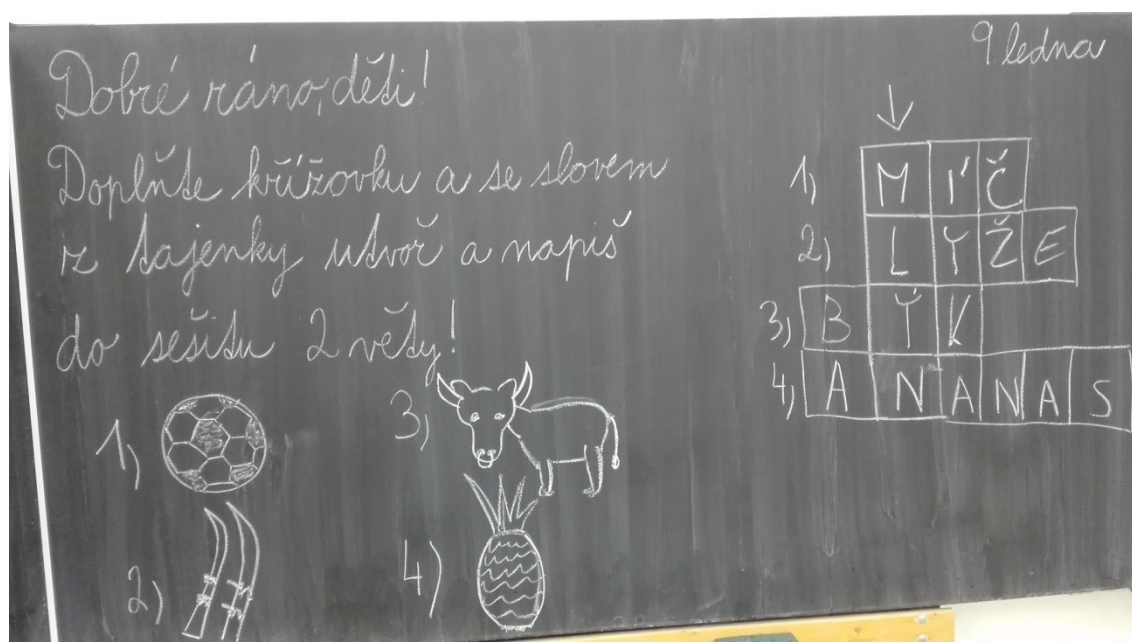 Dobré ráno, děti!
9 ledna
Doplňte křížovku a se slovem
z tajenky utvoř a napiš
do sešitu 2 věty!
1)
2)
3)
4)
1) M Í Č
2) L Y Ž E
3) B Ý K
4) A N A N A S